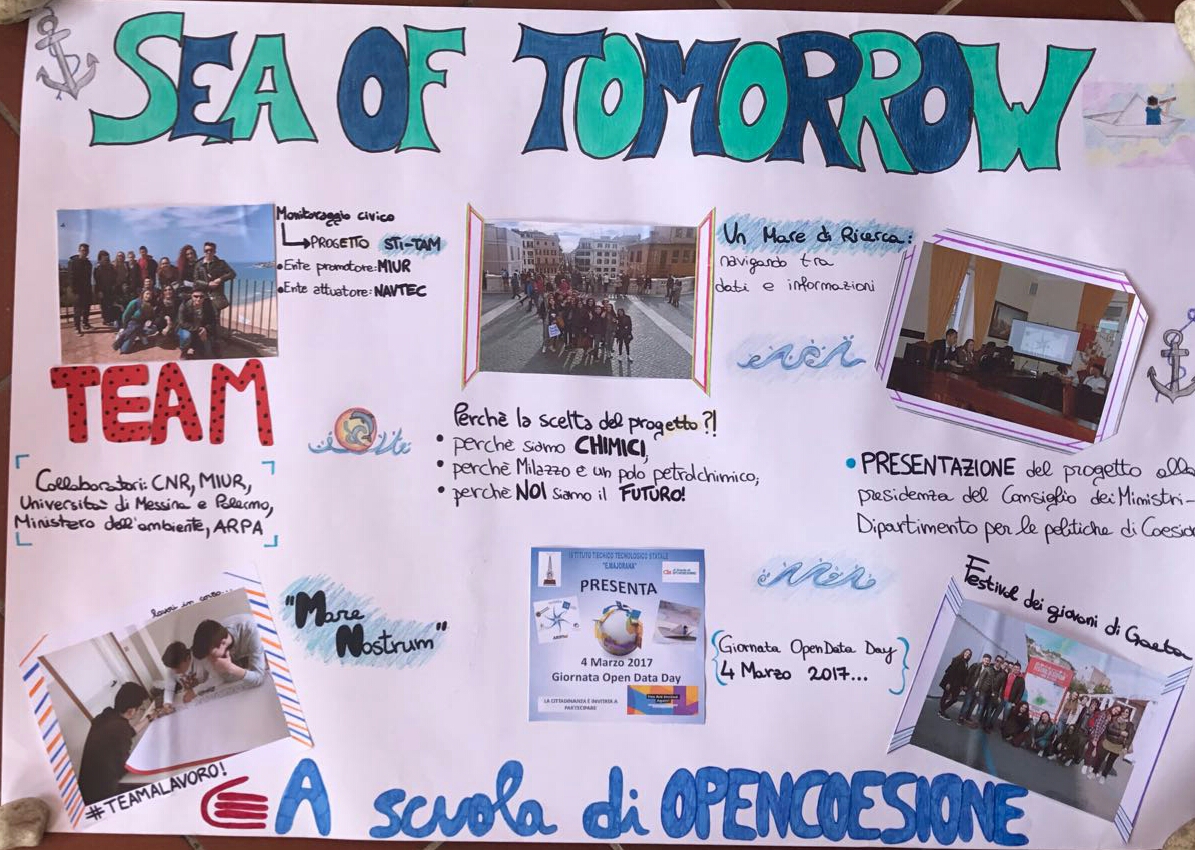 SEA OF TOMORROW
Monitoraggio civico
PROGETTO STI-TAM
•Ente promotore: MIUR
•Ente attuatore: NAVTEC
Un Mare di Ricerca:
navigando tra
dati e informazioni
TEAM
Collaboratori: CNR, MIUR,
Università di Messina e Palermo,
Ministero dell'ambiente, ARPA
Perchè la scelta del progetto?!
• perchè siamo CHIMICI,
• perchè Milazzo è un polo petrolchimico,
• perchè NOI siamo il FUTURO!
• PRESENTAZIONE del progetto alla
presidenza del Consiglio dei Ministri-
Dipartimento per le politiche di Coesio
lavori in corso...
"Mare
Nostrum"
#TEAMALAVORO!
ISTITUTO TECNICO TECNOLOGICO STATALE
"E.MAJORANA"
PRESENTA
4 Marzo 2017
Giornata Open Data Day
LA CITTADINANZA È INVITATA A
PARTECIPARE!
{Giornata OpenData Day}
4 Marzo 2017...
Festival dei giovani di Gaeta
A scuola di OPENCOESIONE